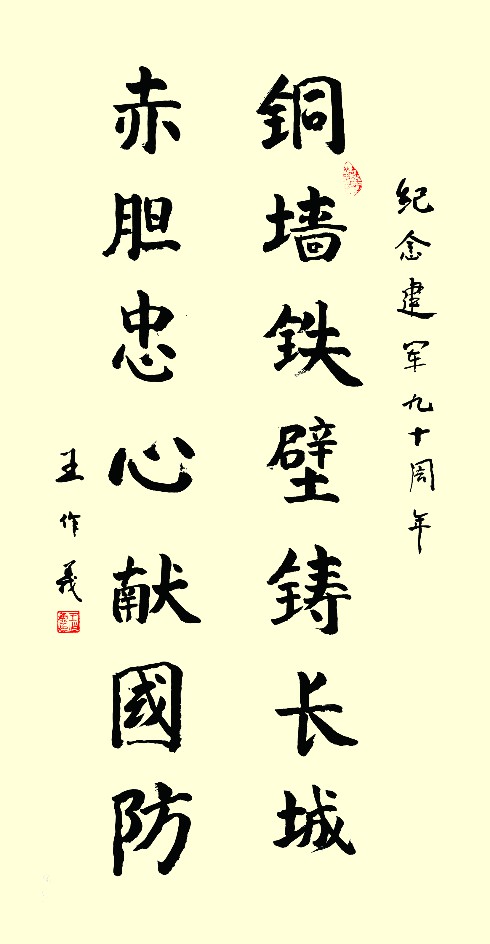 纪念建军九十周年
铜墙铁壁铸长城
赤胆忠心献國防
王作義